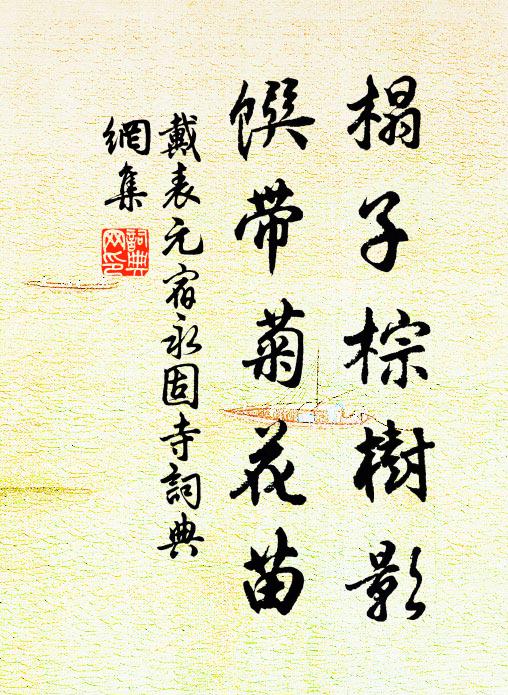 榻子棕樹影
饌帶菊花苗
戴表元宿永固寺詞典
網集
詞典網印